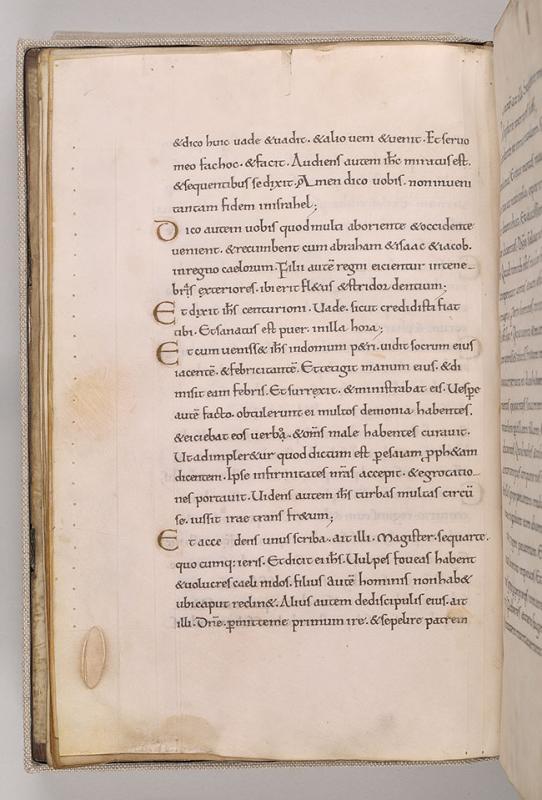 &dico huic uade &uadit. &alio ueni &uenit. Et seruo
meo fac hoc. &facit. Audiens autem ihc miratus est.
&sequentibus se dixit. Amen dico uobis. non inueni
tantam fidem in israhel;
Dico autem uobis quod multi ab oriente &occidente
uenient. &recumbent cum abraham &isaac &iacob.
in regno caelorum. Filii autē regni eicientur in tene-
bras exteriores. ibi erit fl&us &stridor dentium;
Et dixit ihs centurioni. Uade. sicut credidisti fiat
tibi. Et sanatus est puer. in illa hora;
Et cum ueniss& ihs in domum p&ri. uidit socrum eius
iacentē. &febricitantē. Et tetigit manum eius. &di
misit eam febris. Et surrexit. &ministrabat eis. Uespe
autē facto. obtulerunt ei multos demonia habentes.
&eiciebat eos uerbo. &oms male habentes curauit.
Ut adimpler&ur quod dictum est p esaiam pph&am
dicentem. Ipse infirmitates nras accepit. &egrotatio-
nes portauit. Uidens autem ihs turbas multas circū
se. iussit irae trans fr&um;
Et acce dens unus scriba. ait illi. Magister. sequar te.
quo cumq; ieris. Et dicit ei ihs. Uulpes foueas habent
&uolucres caeli nidos. filius autē hominis non hab&
ubi caput reclin&. Alius autem de discipulis eius. ait
illi. Dne. pmitte me primum ire. &sepelire patrem